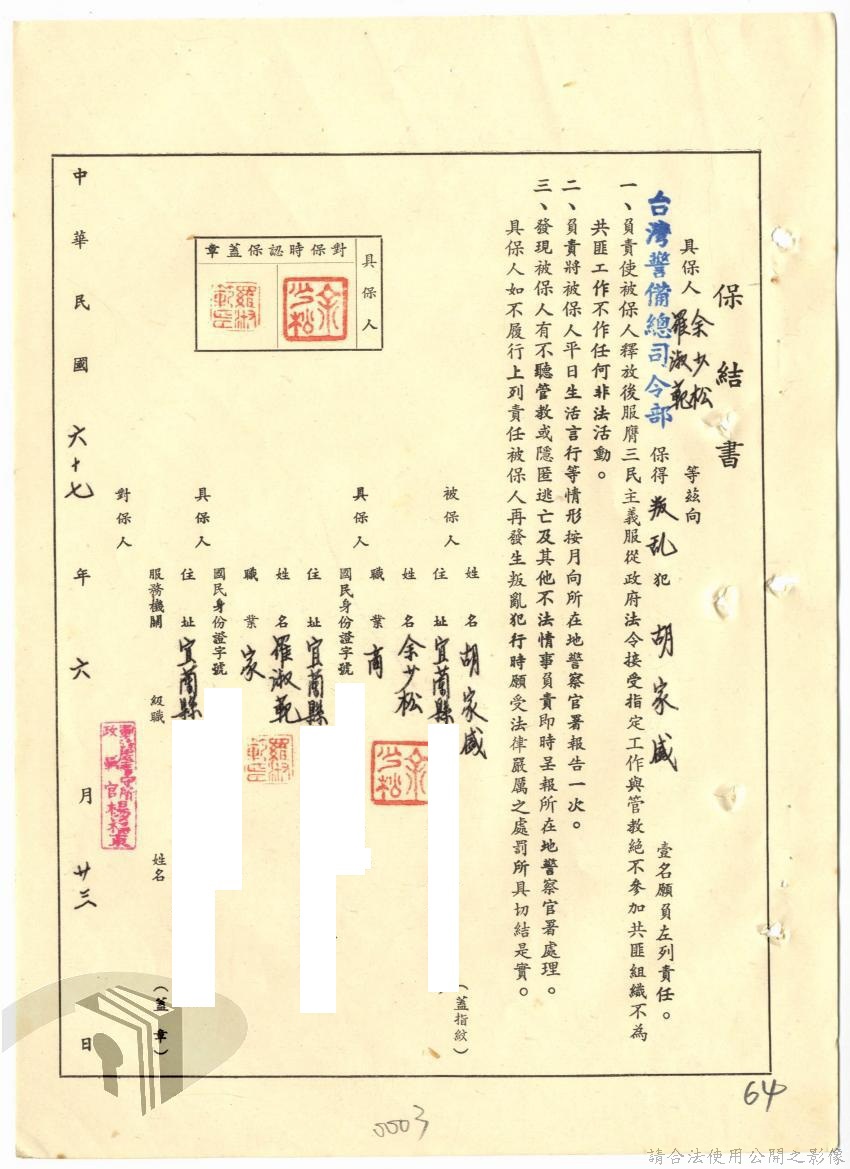 保結書
具保人 余少松 羅淑範 等茲向
台灣警備總司令部 保得 叛乱 犯 胡家盛 壹名願負左列責任。
一、負責使被保人釋放後服膺三民主義服從政府法令接受指定工作與管教絕不參加共匪組織不為
共匪工作不作任何非法活動。
二、負責將被保人平日生活言行等情形按月向所在地警察官署報告一次。
三、發現被保人有不聽管教或隱匿逃亡及其他不法情事負責即時呈報所在地警察官署處理。
具保人如不履行上列責任被保人再發生叛亂犯行時願受法律嚴厲之處罰所具切結是實。
被保人 姓名 胡家盛 (蓋指紋)
住址 宜蘭縣
具保人 姓名 余少松
職業 商
國民身份證字號
住址 宜蘭縣
具保人 姓名 羅淑範
職業 家
國民身份證字號
住址 宜蘭縣
對保人 服務機關 級職 姓名 (蓋章)
具保人
對保時認保蓋章
余少松
羅淑範
中華民國 六十七 年 六 月 廿三 日
64
0003
請合法使用公開之影像